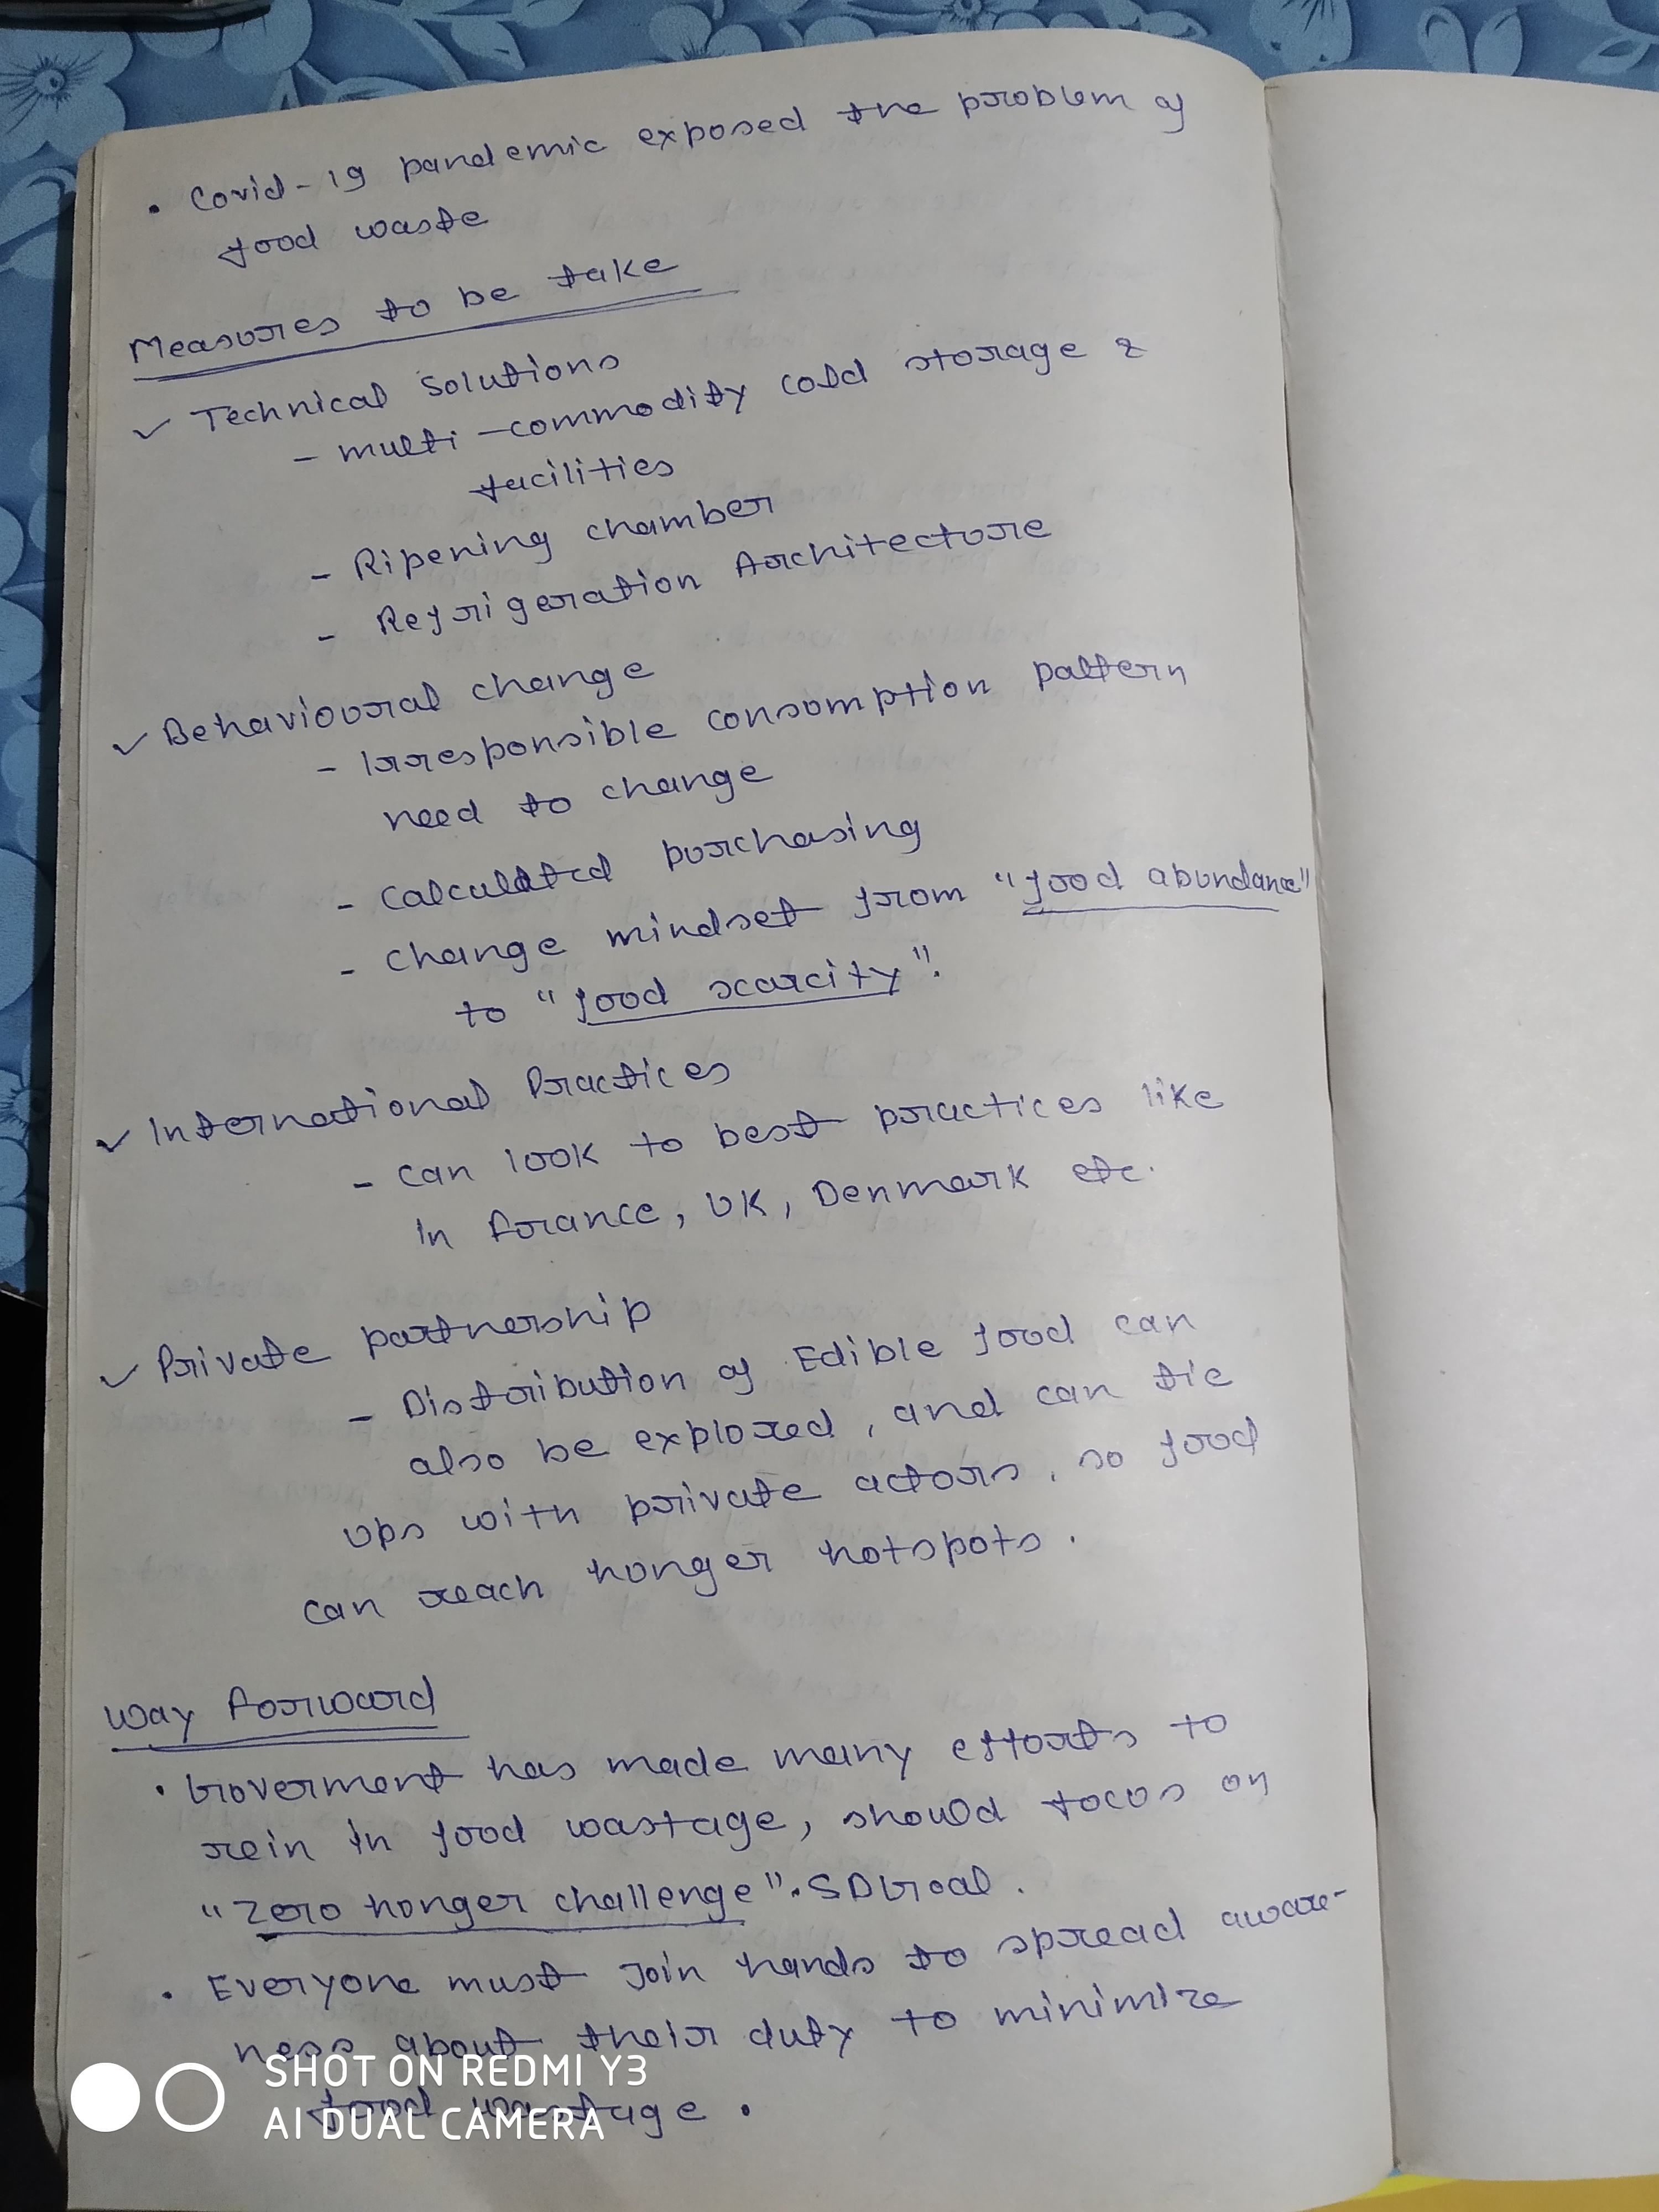 • Covid-19 pandemic exposed the problem of
food waste
Measures to be take
✓ Technical Solutions
- multi-commodity cold storage &
facilities
- Ripening chamber
- Refrigeration Architecture
✓ Behavioural change
- Irresponsible consumption pattern
need to change
- Calculated purchasing
- change mindset from "food abundance"
to "food scarcity".
✓ International Practices
- can look to best practices like
in France, UK, Denmark etc.
✓ Private partnership
- Distribution of Edible food can
also be explored, and can tie
ups with private actors, so food
can reach hunger hotspots.
Way Forward
• Goverment has made many efforts to
rein in food wastage, should focus on
"Zero hunger challenge". SDGoal.
• Everyone must Join hands to spread aware-
ness about their duty to minimize
food wastage.
SHOT ON REDMI Y3
AI DUAL CAMERA